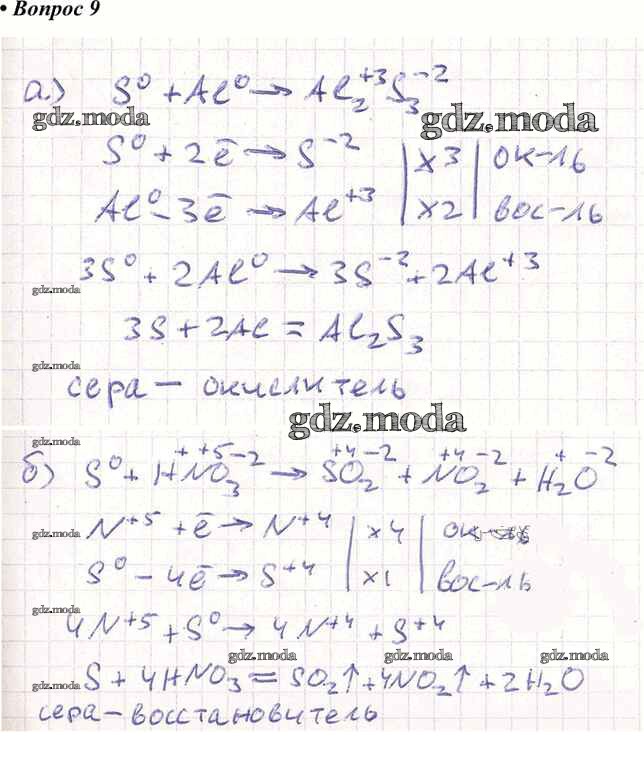 • Вопрос 9
а) S⁰ + Al⁰ → Al₂⁺³S₃⁻²
gdz.moda gdz.moda
S⁰ + 2ē → S⁻² | x3 | ок-ль
Al⁰ - 3ē → Al⁺³ | x2 | вос-ль
3S⁰ + 2Al⁰ → 3S⁻² + 2Al⁺³
gdz.moda
3S + 2Al = Al₂S₃
gdz.moda
сера – окислитель
gdz.moda
gdz.moda
б) S⁰ + H⁺N⁺⁵O₃⁻² → S⁺⁴O₂⁻² + N⁺⁴O₂⁻² + H₂⁺O⁻²
gdz.moda N⁺⁵ + ē → N⁺⁴ | x4 | ок-
S⁰ - 4ē → S⁺⁴ | x1 | вос-ль
gdz.moda
4N⁺⁵ + S⁰ → 4N⁺⁴ + S⁺⁴
gdz.moda gdz.moda gdz.moda
gdz.moda S + 4HNO₃ = SO₂↑ + 4NO₂↑ + 2H₂O
сера – восстановитель